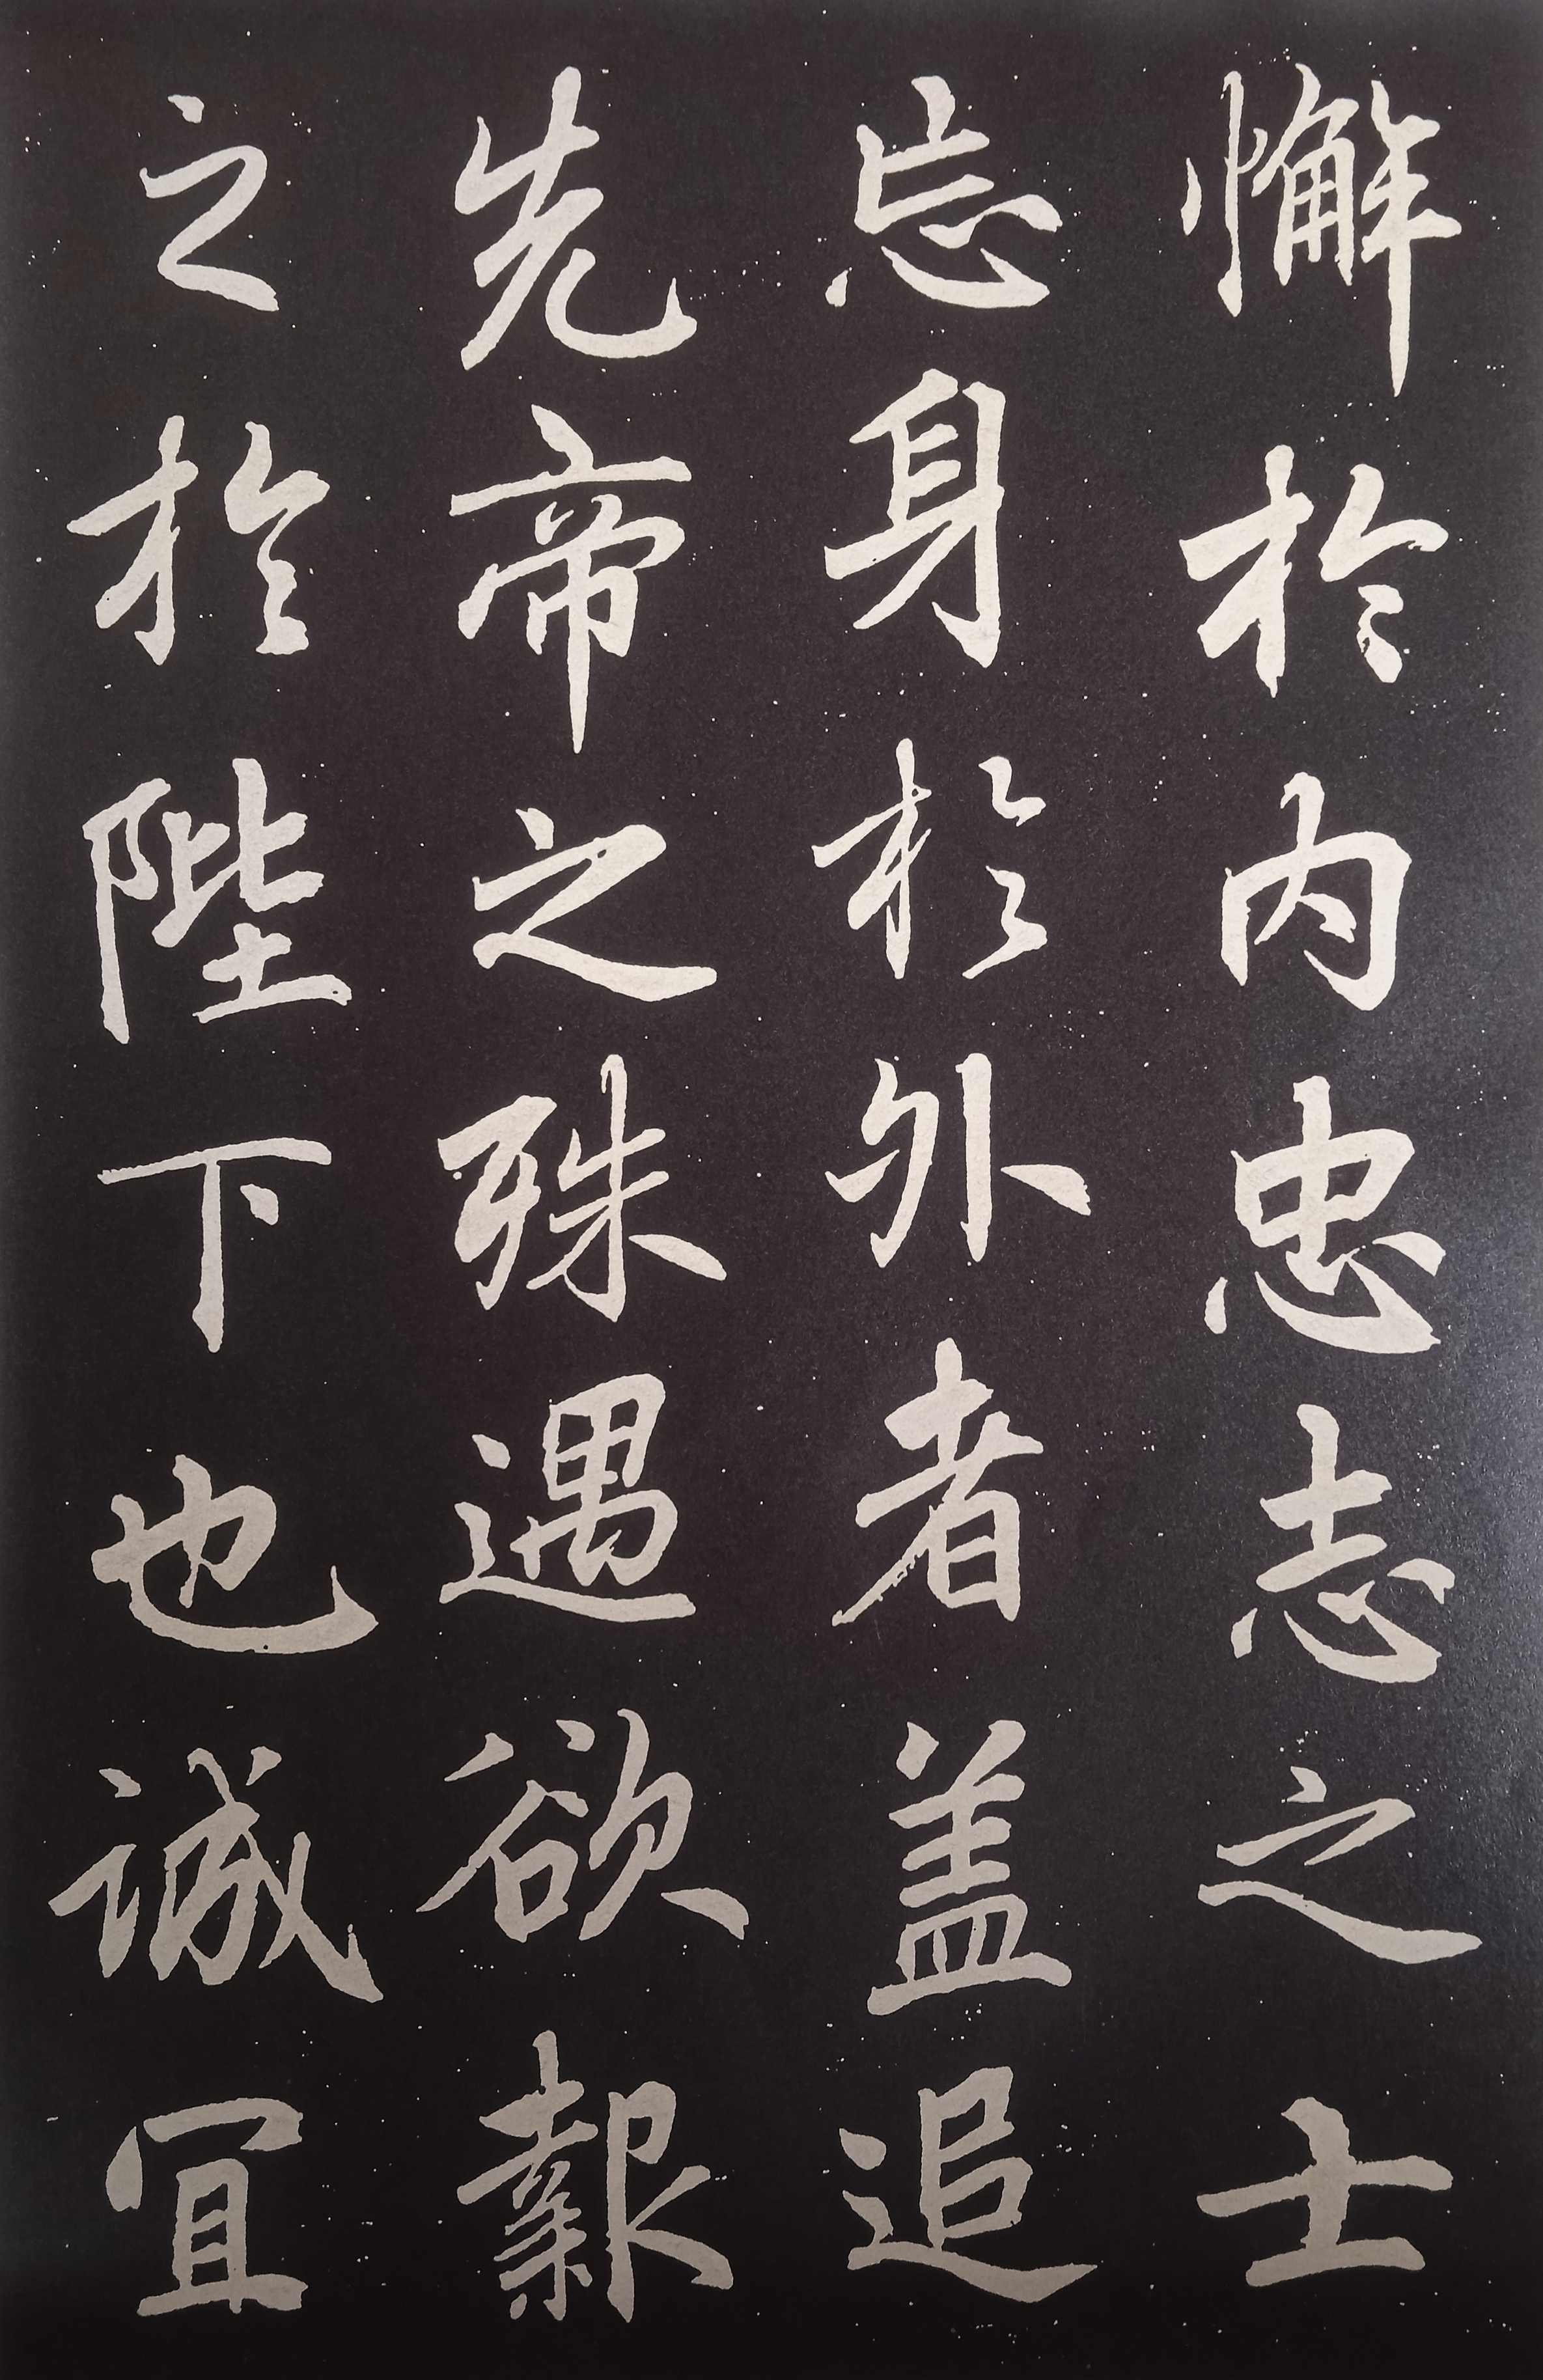 懈於内忠志之士
忘身於外者盖追
先帝之殊遇欲報
之於陛下也誠宜